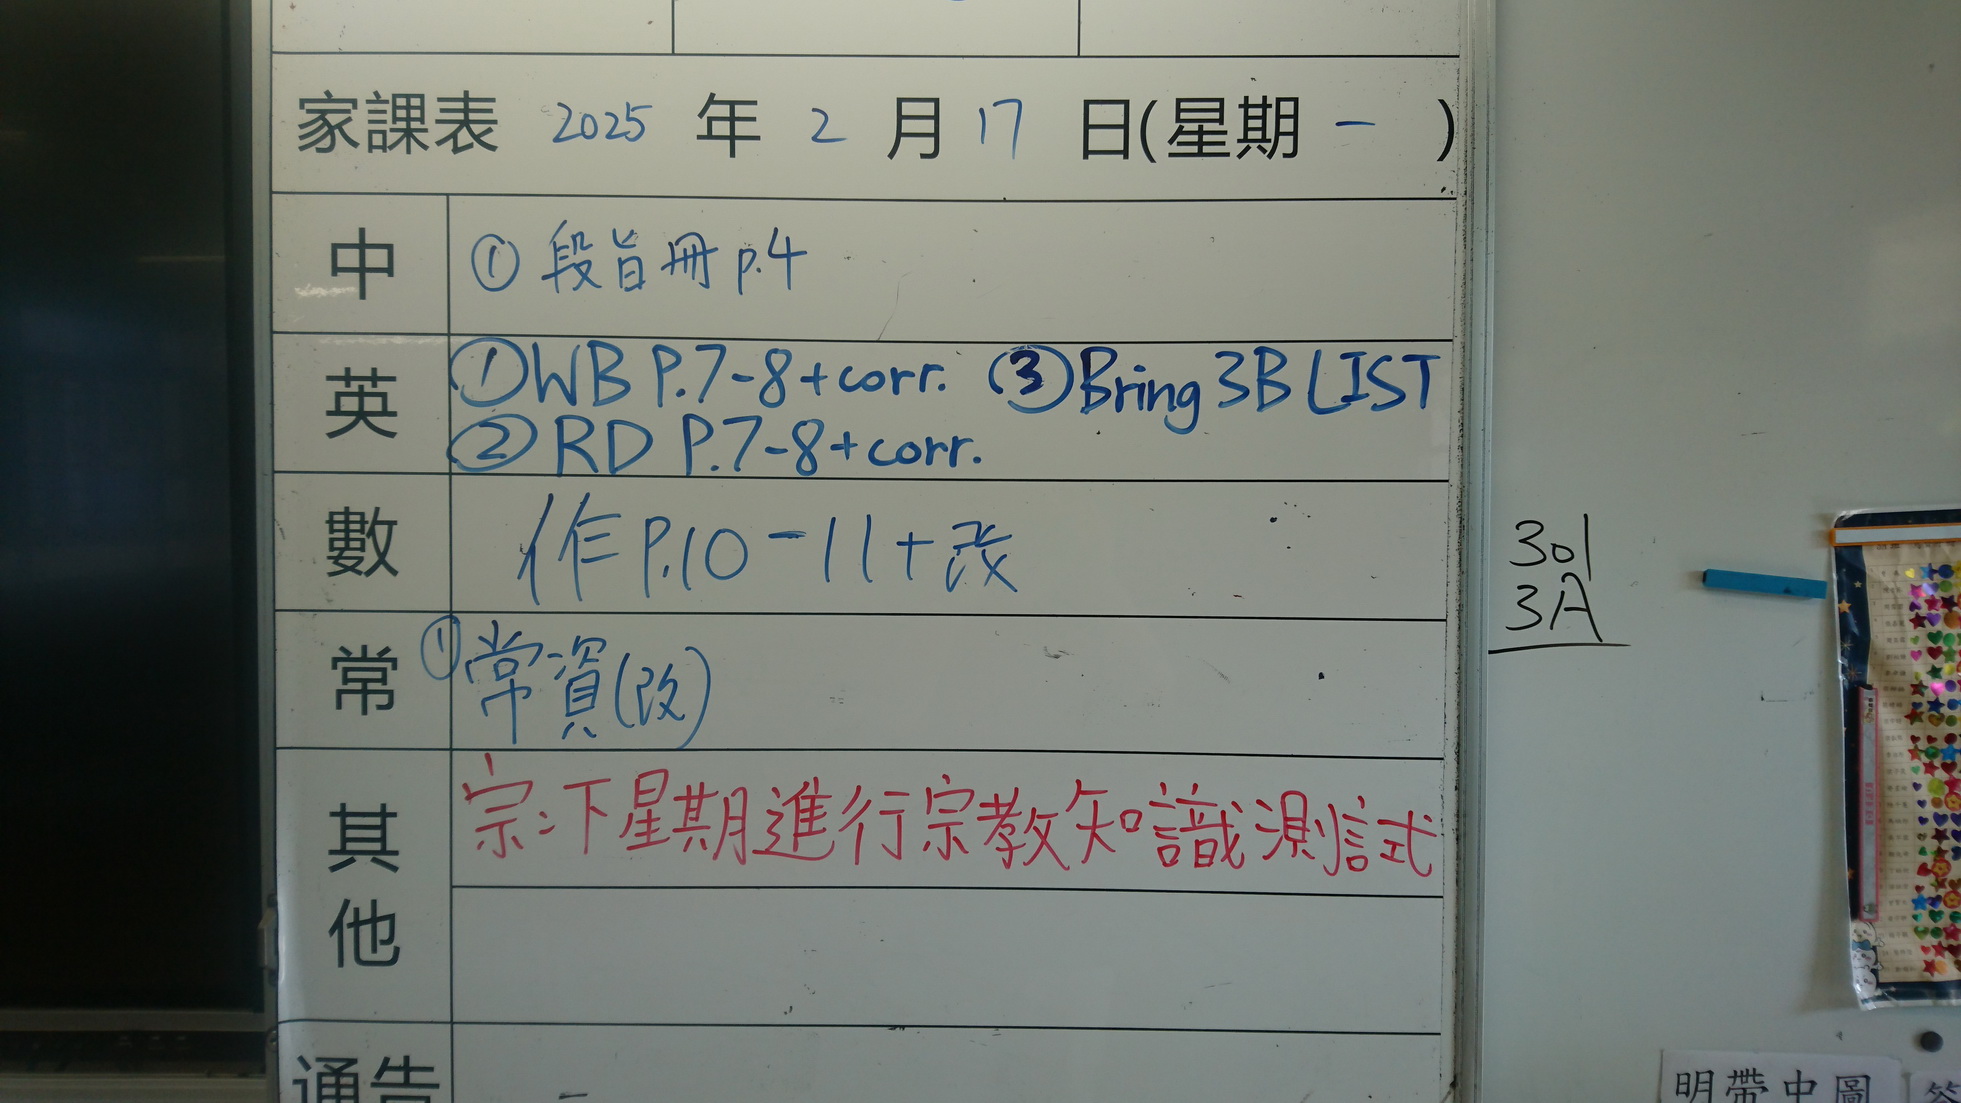 家課表 2025 年 2 月 17 日(星期 一 )
中 ① 段旨冊 p.4
英 ①WB P.7-8+corr. ③Bring 3B LIST
②RD P.7-8+corr.
數 作P.10-11+改
常 ①常資(改)
其他 宗:下星期進行宗教知識測試
通告
301
3A
明帶中圖